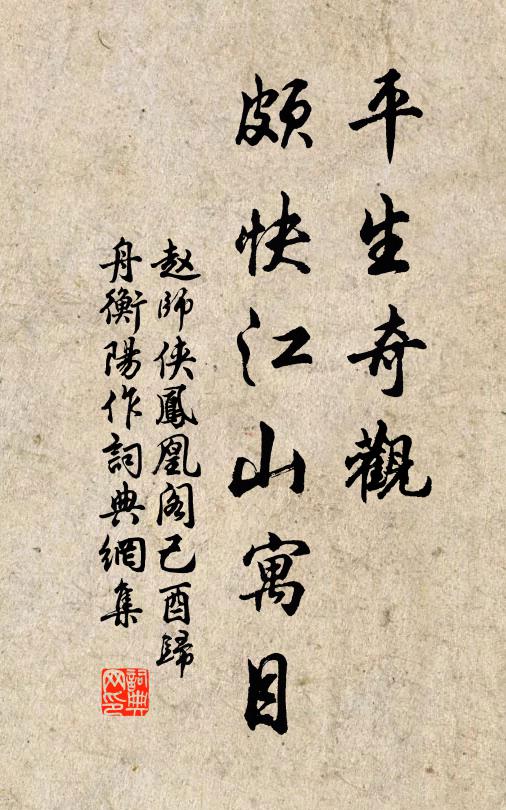 平生奇觀
頗快江山寓目
赵師侠鳳凰阁己酉歸
舟衡陽作詞典網集
詞典网印